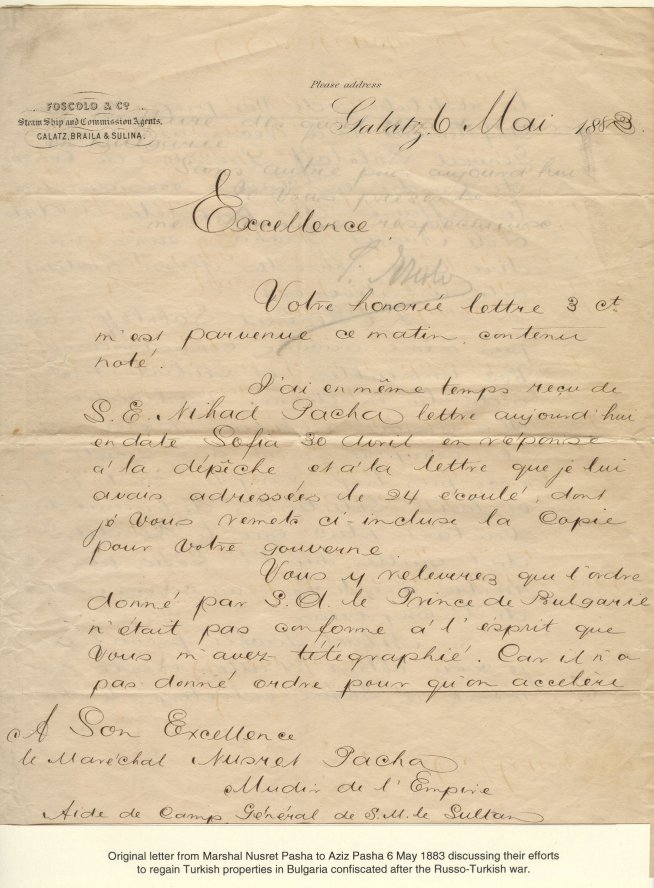 Please address
FOSCOLO & Cº
Steam Ship and Commission Agents,
GALATZ, BRAILA & SULINA.
Galatz, 6 Mai 1883.
Excellence
Votre honorée lettre 3 ct
m'est parvenue ce matin, contenu
noté.
J'ai en même temps reçu de
S. E. Nihad Pacha lettre aujourd'hui
en date Sofia 30 Avril en réponse
à la dépêche et à la lettre que je lui
avais adressées le 24 écoulé, dont
je vous remets ci-incluse la Copie
pour votre gouverne.
Vous y releverez que l'ordre
donné par S. A. le Prince de Bulgarie
n'était pas conforme à l'esprit que
vous m'avez télégraphié. Car il n'a
pas donné ordre pour qu'on accelère
A Son Excellence
le Maréchal Nusret Pacha
Mudir de l'Empire
Aide de Camp Général de S. M. le Sultan
Original letter from Marshal Nusret Pasha to Aziz Pasha 6 May 1883 discussing their efforts
to regain Turkish properties in Bulgaria confiscated after the Russo-Turkish war.